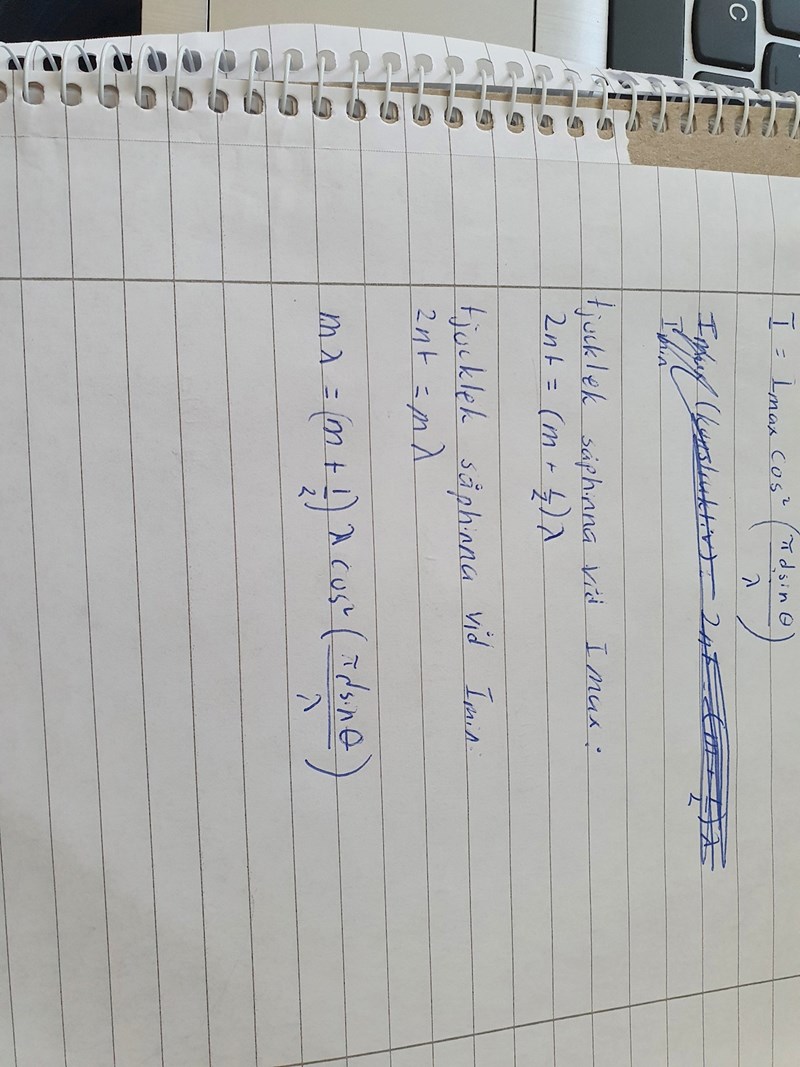 I = Imax cos² (πdsinθ/λ)
Imin (konstruktiv): 2nt = (m + 1/2)λ
tjocklek såphinna vid Imax:
2nt = (m + 1/2)λ
tjocklek såphinna vid Imin:
2nt = mλ
mλ = (m + 1/2) λ cos² (πdsinθ/λ)
C